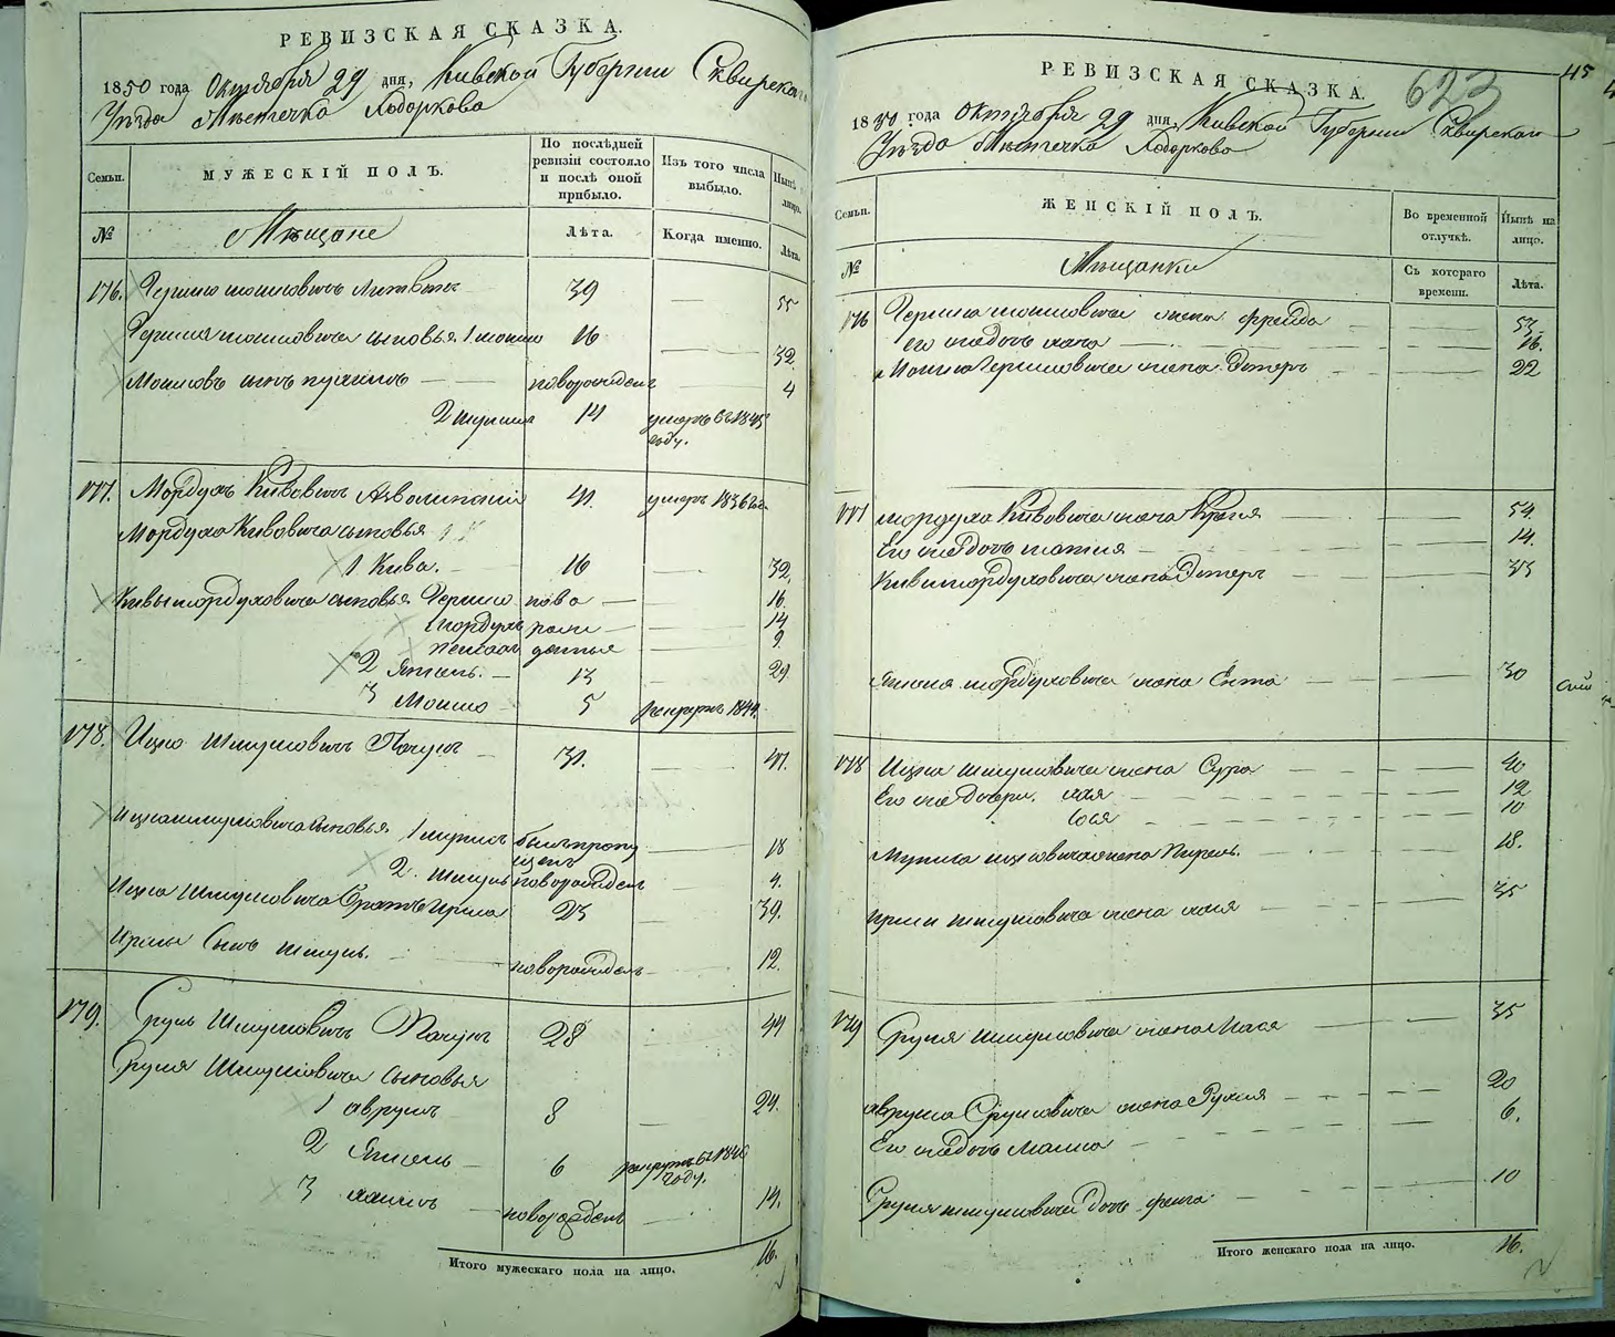 РЕВИЗСКАЯ СКАЗКА.
1850 года Октября 29 дня, Киевской Губернии Сквирскаго
Уезда Местечка Ходоркова
Семьи.
МУЖЕСКІЙ ПОЛЪ.
По послѣдней ревизіи состояло и послѣ оной прибыло.
Изъ того числа выбыло.
Нынѣ лицо.
№
Мещане
Лѣта.
Когда именно.
Лѣта.
176. Гершко Мошковичъ 39 55
Гершка Мошковича сыновья 1 Мошко 16 32
Мошковъ сынъ новорожденъ 4
2 14 умеръ въ 1845 году.
177. Мордухъ Кивовичъ 41. умеръ 1836
Мордуха Кивовича сыновья
1 Кива. 16 32.
Кивы Мордуховича сыновья Гершко ново 16.
Мордухъ рож 14
денные 9.
2 Янкель. 13 29
3 Мошко 5 рекрутъ 1844.
178. Ицко Шмулевичъ 31. 47.
Ицка Шмулевича сыновья 1 былъ пропущенъ 18
2. Шмуль новорожденъ 4.
Ицка Шмулевича братъ 23 39.
сынъ Шмуль. новорожденъ 12.
179. Сруль Шмулевичъ 28 44
Сруля Шмулевича сыновья
1 Аврумъ 8 24.
2 Янкель 6 рекрутъ въ 1846 году.
3 Хаимъ новорожденъ 14.
Итого мужескаго пола на лицо. 16.
45
623
РЕВИЗСКАЯ СКАЗКА.
1850 года Октября 29 дня, Киевской Губернии Сквирскаго
Уезда Местечка Ходоркова
Семьи.
ЖЕНСКІЙ ПОЛЪ.
Во временной отлучкѣ.
Нынѣ на лицо.
№
Мещанки
Съ котораго времени.
Лѣта.
176 Гершка Мошковича жена Фрейда 53
его же дочь Хана 16.
Мошка Гершковича жена Эстеръ 22
177 Мордуха Кивовича жена 54.
Его же дочь 14.
Кивы Мордуховича жена Эстеръ 33
Янкеля Мордуховича жена Ента 30
178 Ицка Шмулевича жена Сура 40
Его же дочери. Хая 12
10
жена Пирель. 18.
Шмулевича жена Хая 35
179 Сруля Шмулевича жена Хася 35
Аврума Срулевича жена Рухля 20
Его же дочь 6.
Сруля Шмулевича дочь Фейга 10
Итого женскаго пола на лицо. 16.